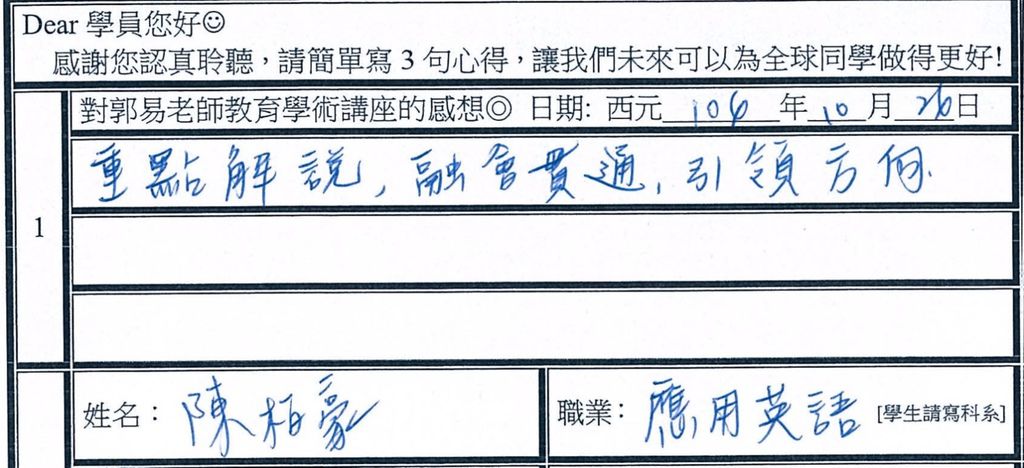 Dear 學員您好☺
感謝您認真聆聽，請簡單寫 3 句心得，讓我們未來可以為全球同學做得更好!
對郭易老師教育學術講座的感想◎ 日期: 西元 106 年 10 月 26 日
1
重點解說，融會貫通，引領方向.
姓名：陳柏豪
職業：應用英語 [學生請寫科系]